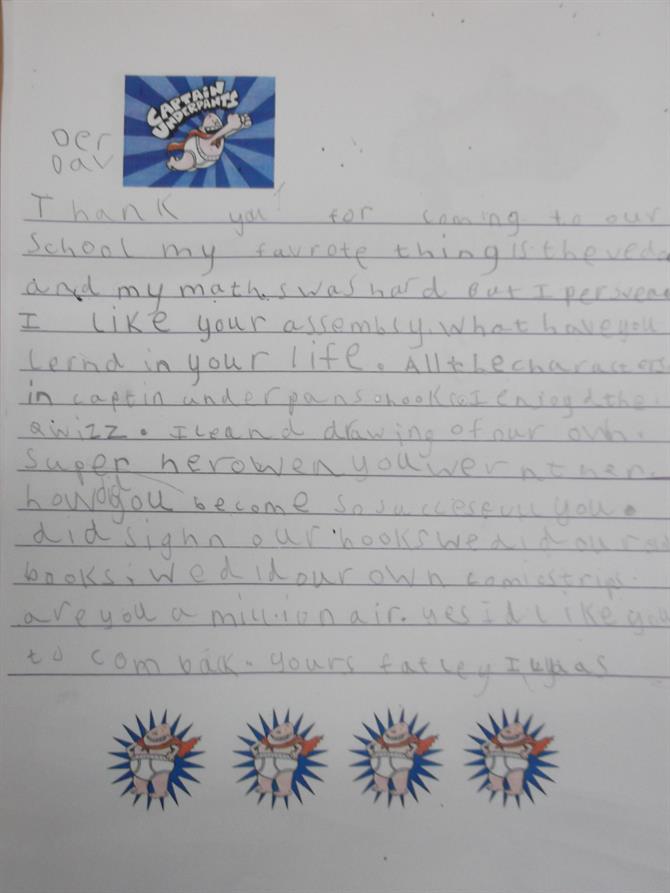 CAPTAIN
UNDERPANTS
Der
Dav
Thank you for coming to our
School my favrote thing is the
and my maths was hard But I
I like your assembly. What have you
lernd in your life. All the characters
in captin underpans I enjoyd the
qwizz. I drawing of our own.
Super hero wen you wer
how did you become so successfull you.
did sighn our books we did our
books. we did our own comicstrips.
are you a millionair. yes id like you
to com back. yours fatley